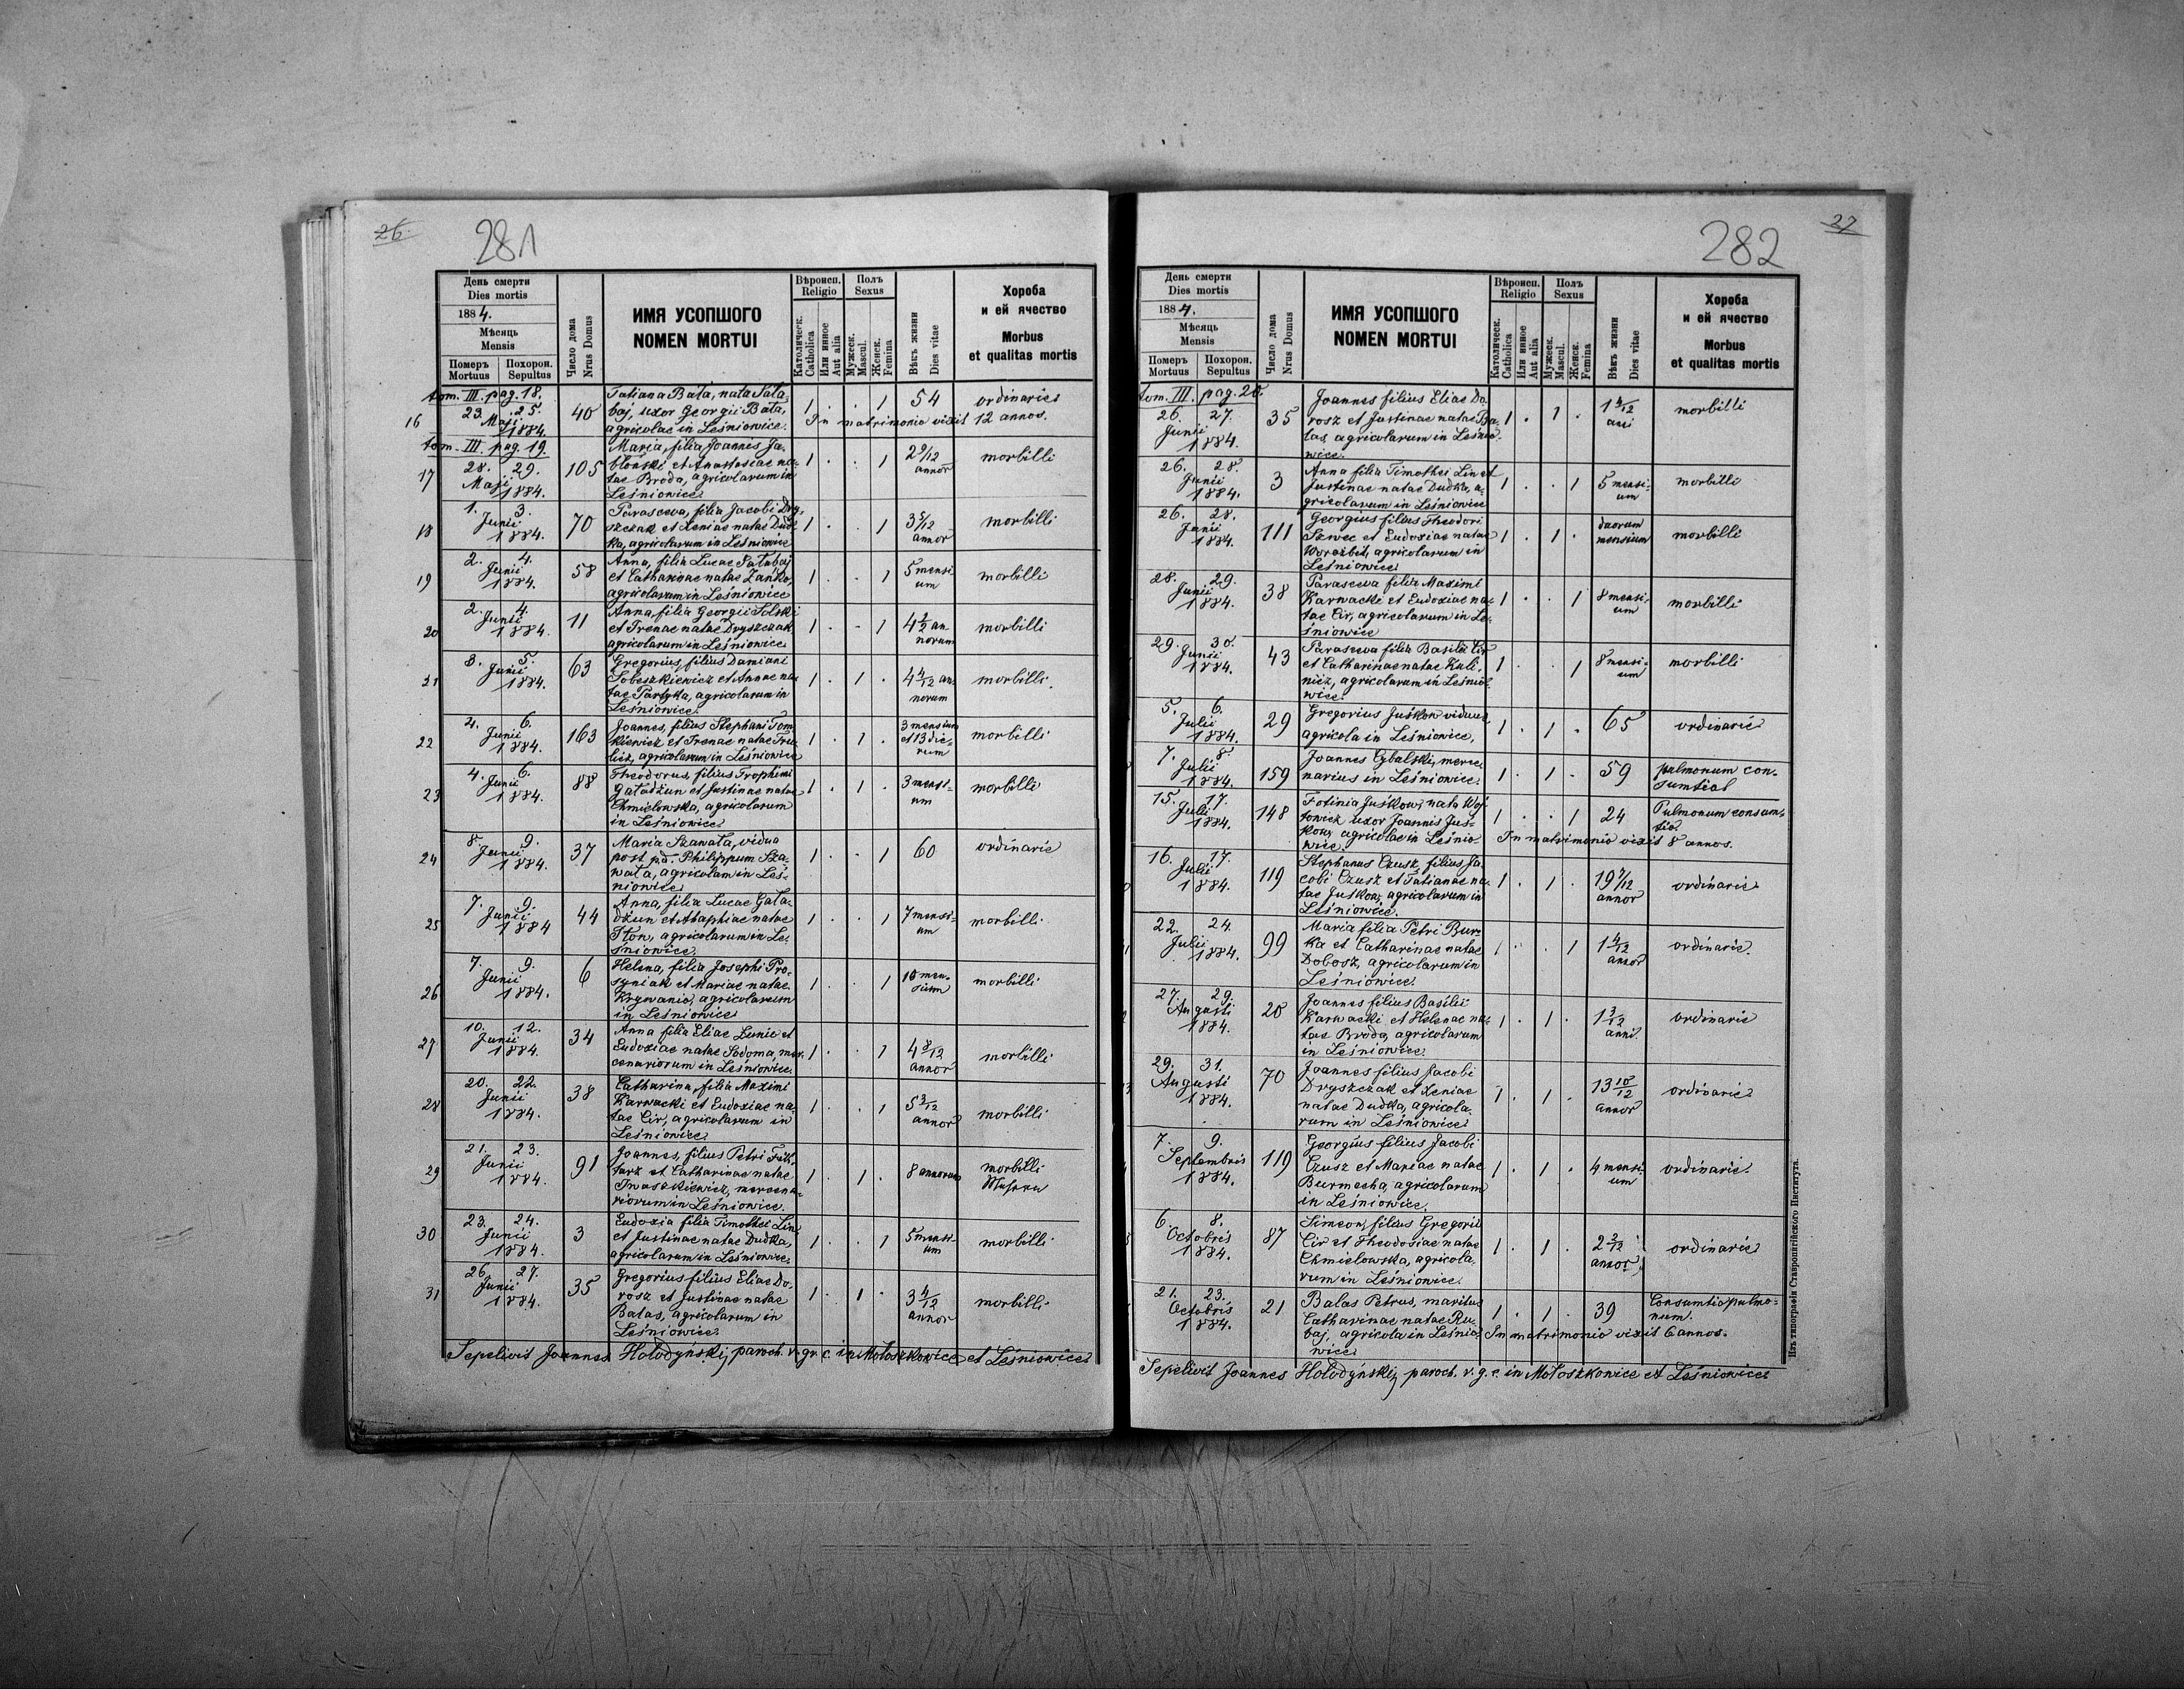 26.
281
День смерти
Dies mortis
1884.
Мѣсяць
Mensis
Померъ
Mortuus
Похорон.
Sepultus
Число дома
Nrus Domus
ИМЯ УСОПШОГО
NOMEN MORTUI
Вѣроисп.
Religio
Католическ.
Catholica
Или инное
Aut alia
Полъ
Sexus
Мужеск.
Mascul.
Женск.
Femina
Вѣкъ жизни
Dies vitae
Хороба
и ей ячество
Morbus
et qualitas mortis
tom. III. pag. 18.
16
23. 25.
Maji
1884.
40
Tatiana Bata, nata Sała-
baj, uxor Georgii Bata,
agricolae in Leśniowice.
1 . . 1
54
ordinarie
In matrimonio vixit 12 annos.
tom. III. pag. 19.
17
28. 29.
Maji
1884.
105
Maria, filia Joannis Ja-
błoński et Anastasiae na-
tae Broda, agricolarum in
Leśniowice.
1 . . 1
2 9/12
annor
morbilli
18
1. 3.
Junii
1884.
70
Parasceva, filia Jacobi Dry-
szczak et Xeniae natae Dud-
ka, agricolarum in Leśniowice
1 . . 1
3 5/12
annor
morbilli
19
2. 4.
Junii
1884.
58
Anna, filia Lucae Sałabaj
et Catharinae natae Zańko,
agricolarum in Leśniowice
1 . . 1
5 mensi
um
morbilli
20
2. 4.
Junii
1884.
11
Anna, filia Georgii Solski
et Irenae natae Dryszczak
agricolarum in Leśniowice
1 . . 1
4 1/2 an
norum
morbilli
21
3. 5.
Junii
1884.
63
Gregorius, filius Damiani
Sobeszkiewicz et Annae na-
tae Partyka, agricolarum in
Leśniowice.
1 . 1 .
4 4/12 an-
norum
morbilli.
22
4. 6.
Junii
1884.
163
Joannes, filius Stephani Tom
kiewicz et Irenae natae
agricolarum in Leśniowice
1 . 1 .
3 mensium
et 13 die-
rum
morbilli
23
4. 6.
Junii
1884.
88
Theodorus, filius Trophimi
Gaładżun et Justinae natae
Chmielowska, agricolarum
in Leśniowice.
1 . 1 .
3 mensi-
um
morbilli
24
8. 9.
Junii
1884.
37
Maria Szawała, vidua
post pd. Philippum Sza-
wała, agricolam in Leś-
niowice
1 . . 1
60
ordinarie
25
7. 9.
Junii
1884
44
Anna, filia Lucae Gała-
dżun et Ahaphiae natae
Ston, agricolarum in Le-
śniowice.
1 . . 1
7 mensi-
um
morbilli
26
7. 9.
Junii
1884.
6
Helena, filia Josephi Pro-
syniak et Mariae natae
Krywania, agricolarum
in Leśniowice
1 . . 1
10 men-
sium
morbilli
27
10. 12.
Junii
1884.
34
Anna filia Eliae Łunic et
Eudoxiae natae Sodoma, mer-
cenariorum in Leśniowice.
1 . . 1
4 8/12
annor
morbilli
28
20. 22.
Junii
1884.
38
Catharina, filia Maximi
Karwacki et Eudoxiae na-
tae Cir, agricolarum in
Leśniowice.
1 . . 1
5 3/12
annor
morbilli
29
21. 23.
Junii
1884.
91
Joannes, filius Petri
et Catharinae natae
Iwaszkiewicz, mercena-
riorum in Leśniowice.
1 . 1 .
8 annorum
morbilli
30
23. 24.
Junii
1884.
3
Eudoxia filia Timothei Lin
et Justinae natae Dudka,
agricolarum in Leśniowice.
1 . . 1
5 mensi-
um
morbilli
31
26. 27.
Junii
1884.
35
Gregorius filius Eliae Do-
rosz et Justinae natae
Balas, agricolarum in
Leśniowice.
1 . 1 .
3 4/12
annor
morbilli
Sepelivit Joannes Hołodyńskij paroch. r. gr. c. in Mołoszkowice et Leśniowice
27
282
День смерти
Dies mortis
1884.
Мѣсяць
Mensis
Померъ
Mortuus
Похорон.
Sepultus
Число дома
Nrus Domus
ИМЯ УСОПШОГО
NOMEN MORTUI
Вѣроисп.
Religio
Католическ.
Catholica
Или инное
Aut alia
Полъ
Sexus
Мужеск.
Mascul.
Женск.
Femina
Вѣкъ жизни
Dies vitae
Хороба
и ей ячество
Morbus
et qualitas mortis
tom. III. pag. 20.
26. 27.
Junii
1884.
35
Joannes filius Eliae Do-
rosz et Justinae natae Ba-
las, agricolarum in Leśnio-
wice.
1 . 1 .
1 4/12
ani
morbilli
26. 28.
Junii
1884.
3
Anna filia Timothei Lin et
Justinae natae Dudka, a-
gricolarum in Leśniowice
1 . . 1
5 mensi-
um
morbilli
26. 28.
Junii
1884.
111
Georgius filius Theodori
Szwec et Eudoxiae natae
Worożbit, agricolarum in
Leśniowice
1 . 1 .
duorum
mensium
morbilli
28. 29.
Junii
1884.
38
Parasceva filia Maximi
Karwacki et Eudoxiae na-
tae Cir, agricolarum in Le-
śniowice
1 . . 1
8 mensi-
um
morbilli
29. 30.
Junii
1884.
43
Parasceva filia Basilii Cir
et Catharinae natae Kuli-
nicz, agricolarum in Leśnio-
wice.
1 . . 1
8 mensi-
um
morbilli
5. 6.
Julii
1884.
29
Gregorius Juśkow viduus,
agricola in Leśniowice,
1 . 1 .
65
ordinarie
7. 8.
Julii
1884.
159
Joannes Cybalski, merce-
narius in Leśniowice.
1 . 1 .
59
pulmonum con-
sumtio
15. 17.
Julii
1884.
148
Fotinia Juśkow, nata Woj-
towicz uxor Joannis Juś-
kow, agricolae in Leśnio-
wice.
1 . . 1
24
Pulmonum consum-
tio.
In matrimonio vixit 8 annos.
16. 17.
Julii
1884.
119
Stephanus Czusz, filius Ja-
cobi Czusz et Tatianae na-
tae Juśkow, agricolarum in
Leśniowice.
1 . 1 .
19 7/12
annor
ordinarie
22. 24.
Julii
1884.
99
Maria filia Petri Bur-
ka et Catharinae natae
Dobosz, agricolarum in
Leśniowice.
1 . . 1
1 4/12
annor
ordinarie.
27. 29.
Augusti
1884.
20
Joannes filius Basilii
Karwacki et Helenae na-
tae Broda, agricolarum
in Leśniowice.
1 . 1 .
1 3/12
anni.
ordinarie
29. 31.
Augusti
1884.
70
Joannes filius Jacobi
Dryszczak et Xeniae
natae Dudka, agricola-
rum in Leśniowice
1 . 1 .
13 10/12
annor
ordinarie
7. 9.
Septembris
1884.
119
Georgius filius Jacobi
Czusz et Mariae natae
Burmecha, agricolarum
in Leśniowice.
1 . 1 .
4 mensi-
um
ordinarie.
6. 8.
Octobris
1884.
87
Simeon, filius Gregorii
Cir et Theodosiae natae
Chmielowska, agricola-
rum in Leśniowice.
1 . 1 .
2 2/12
annor
ordinarie
21. 23.
Octobris
1884.
21
Balas Petrus, maritus
Catharinae natae Ru-
baj, agricola in Leśnio-
wice
1 . 1 .
39
Consumtio pulmo-
num.
In matrimonio vixit 6 annos.
Sepelivit Joannes Hołodyńskij paroch. r. g. c. in Mołoszkowice et Leśniowice
Изъ типографіи Ставропигійского Института.